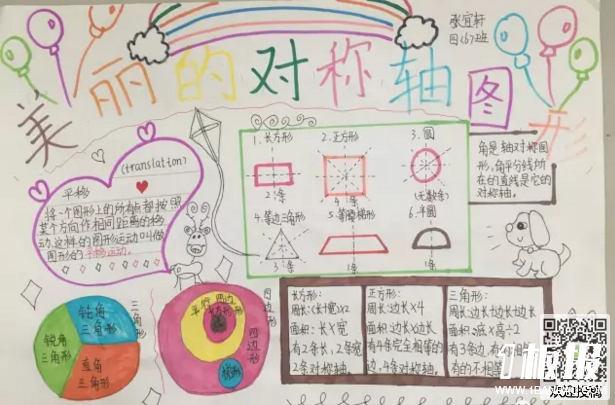 张宜轩
四(6)班
美丽的对称轴图形
(translation)
平移
将一个图形上的所有点都按照
某个方向作相同距离的移
动,这样的图形运动叫做
图形的平移运动。
1.长方形
2.正方形
3.圆
2条
4条
(无数条)
4.等边三角形
5.等腰梯形
6.半圆
3条
1条
1条
角是轴对称图
形,角平分线所
在的直线是它的
对称轴。
钝角
三角形
锐角
三角形
直角
三角形
三角形
平行四边形
梯形
四边形
四边形
长方形:
周长:(长+宽)×2
面积:长×宽
有2条长,2条宽
2条对称轴。
正方形:
周长:边长×4
面积:边长×边长
有4条完全相等的
边,4条对称轴。
三角形:
周长:边长+边长+边长
面积:底×高÷2
有3条边,有的相等
有的不相等